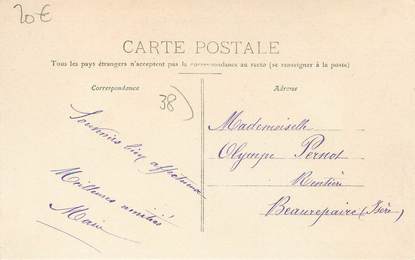 20€
CARTE POSTALE
Tous les pays étrangers n'acceptent pas la correspondance au recto (se renseigner à la poste)
Correspondance
Adresse
38
Souvenirs bien affectueux
Meilleures amitiés
Marie
Mademoiselle
Olympe Pernot
Rentière
Beaurepaire (Isère)